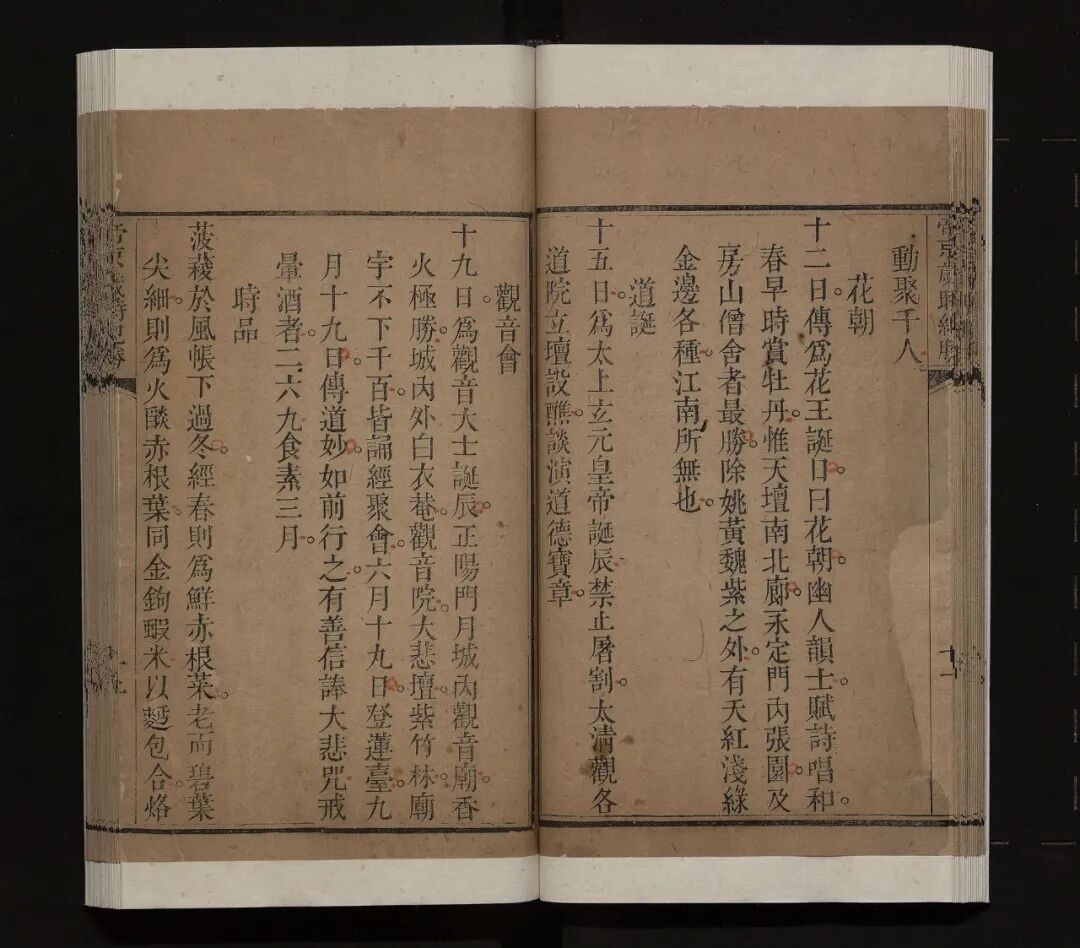 動聚千人
花朝
十二日。傳爲花王誕日。曰花朝。幽人韻士。賦詩唱和。
春早時賞牡丹。惟天壇南北廊。永定門內張園。及
房山僧舍者最勝。除姚黃魏紫之外。有天紅淺綠
金邊各種。江南所無也。
道誕
十五日。爲太上玄元皇帝誕辰。禁止屠割。太清觀各
道院立壇設醮。談演道德寶章。
觀音會
十九日。爲觀音大士誕辰。正陽門月城內觀音廟。香
火極勝。城內外白衣菴。觀音院。大悲壇。紫竹林。廟
宇不下千百。皆誦經聚會。六月十九日。登蓮臺。九
月十九日。傳道妙。如前行之。有善信諱大悲咒。戒
暈酒者。二六九食素三月。
時品
菠薐於風帳下過冬。經春則爲鮮赤根菜。老而碧葉
尖細。則爲火燄赤根葉。同金鉤蝦米以麪包合。烙